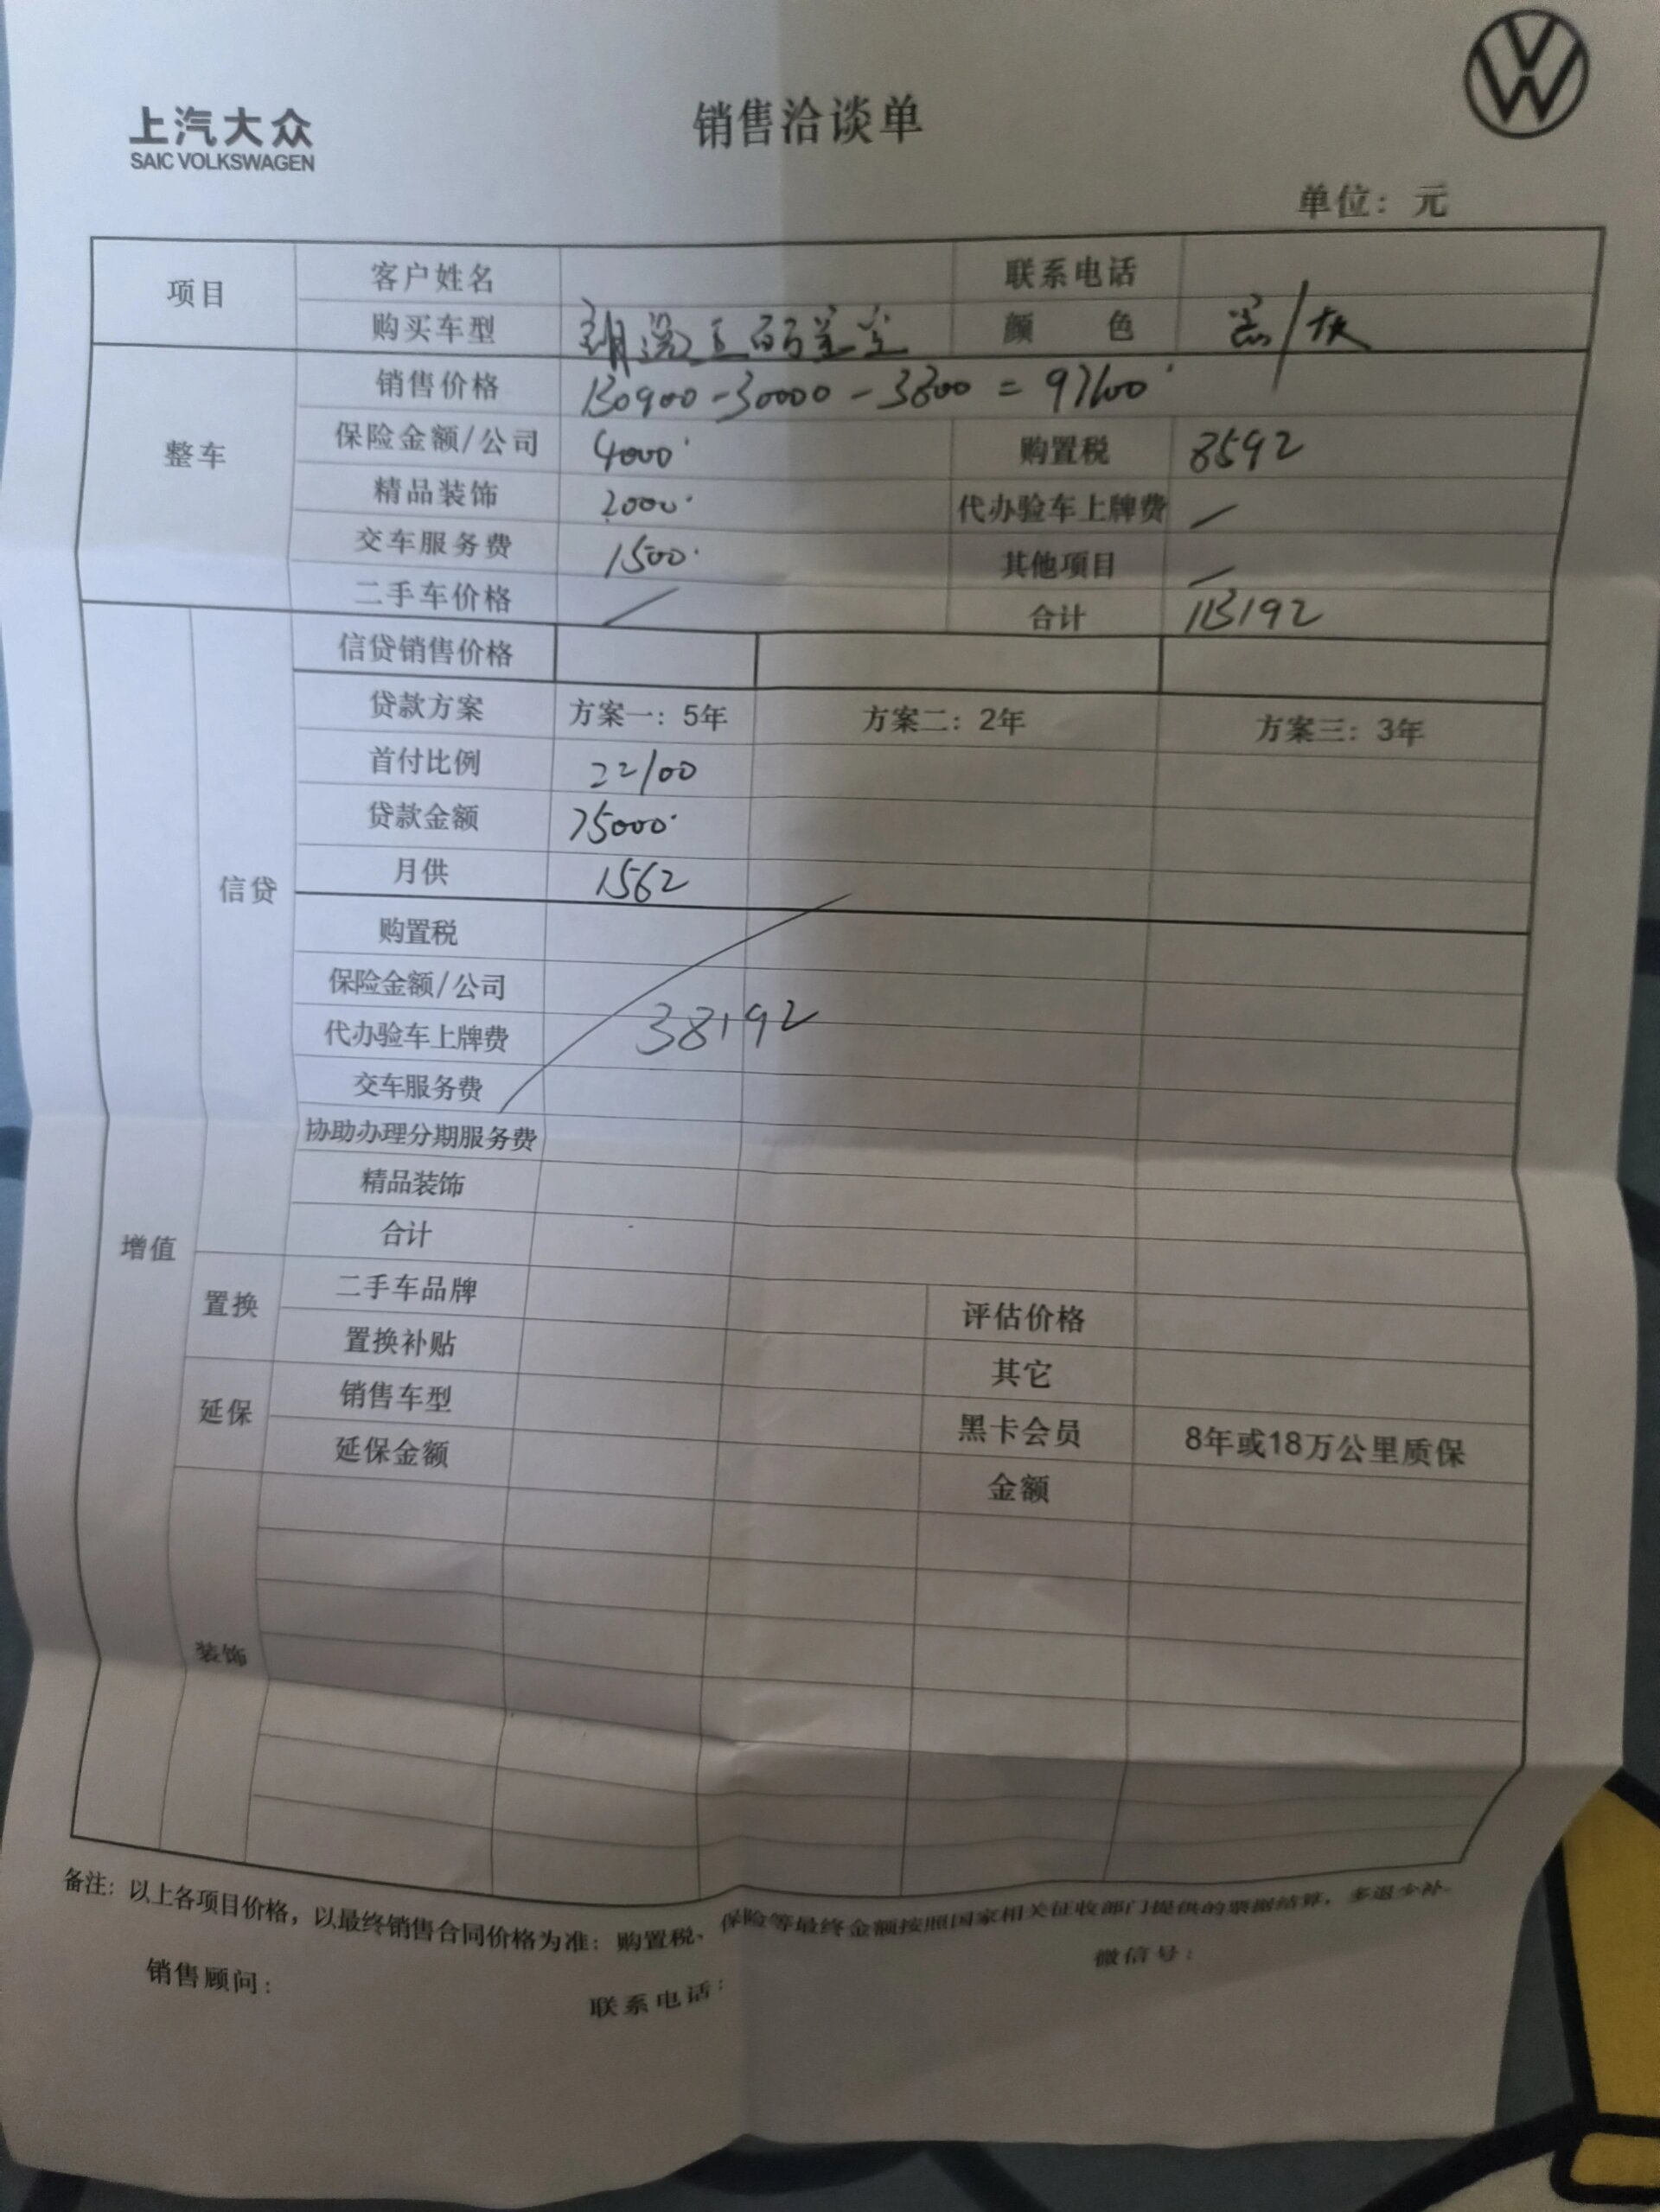 上汽大众
SAIC VOLKSWAGEN
销售洽谈单
单位：元
项目 客户姓名 联系电话
购买车型 朗逸 颜 色 黑/灰
整车 销售价格 130900-30000-3300=97600
保险金额/公司 4000 购置税 8592
精品装饰 2000 代办验车上牌费 /
交车服务费 1500 其他项目 /
二手车价格 / 合计 113192
增值 信贷 信贷销售价格
贷款方案 方案一：5年 方案二：2年 方案三：3年
首付比例 22100
贷款金额 75000
月供 1562
购置税
保险金额/公司
代办验车上牌费 38192
交车服务费
协助办理分期服务费
精品装饰
合计
置换 二手车品牌 评估价格
置换补贴 其它
延保 销售车型 黑卡会员 8年或18万公里质保
延保金额 金额
装饰
备注：以上各项目价格，以最终销售合同价格为准：购置税、保险等最终金额按照国家相关征收部门提供的票据结算，多退少补。
销售顾问： 联系电话： 微信号：